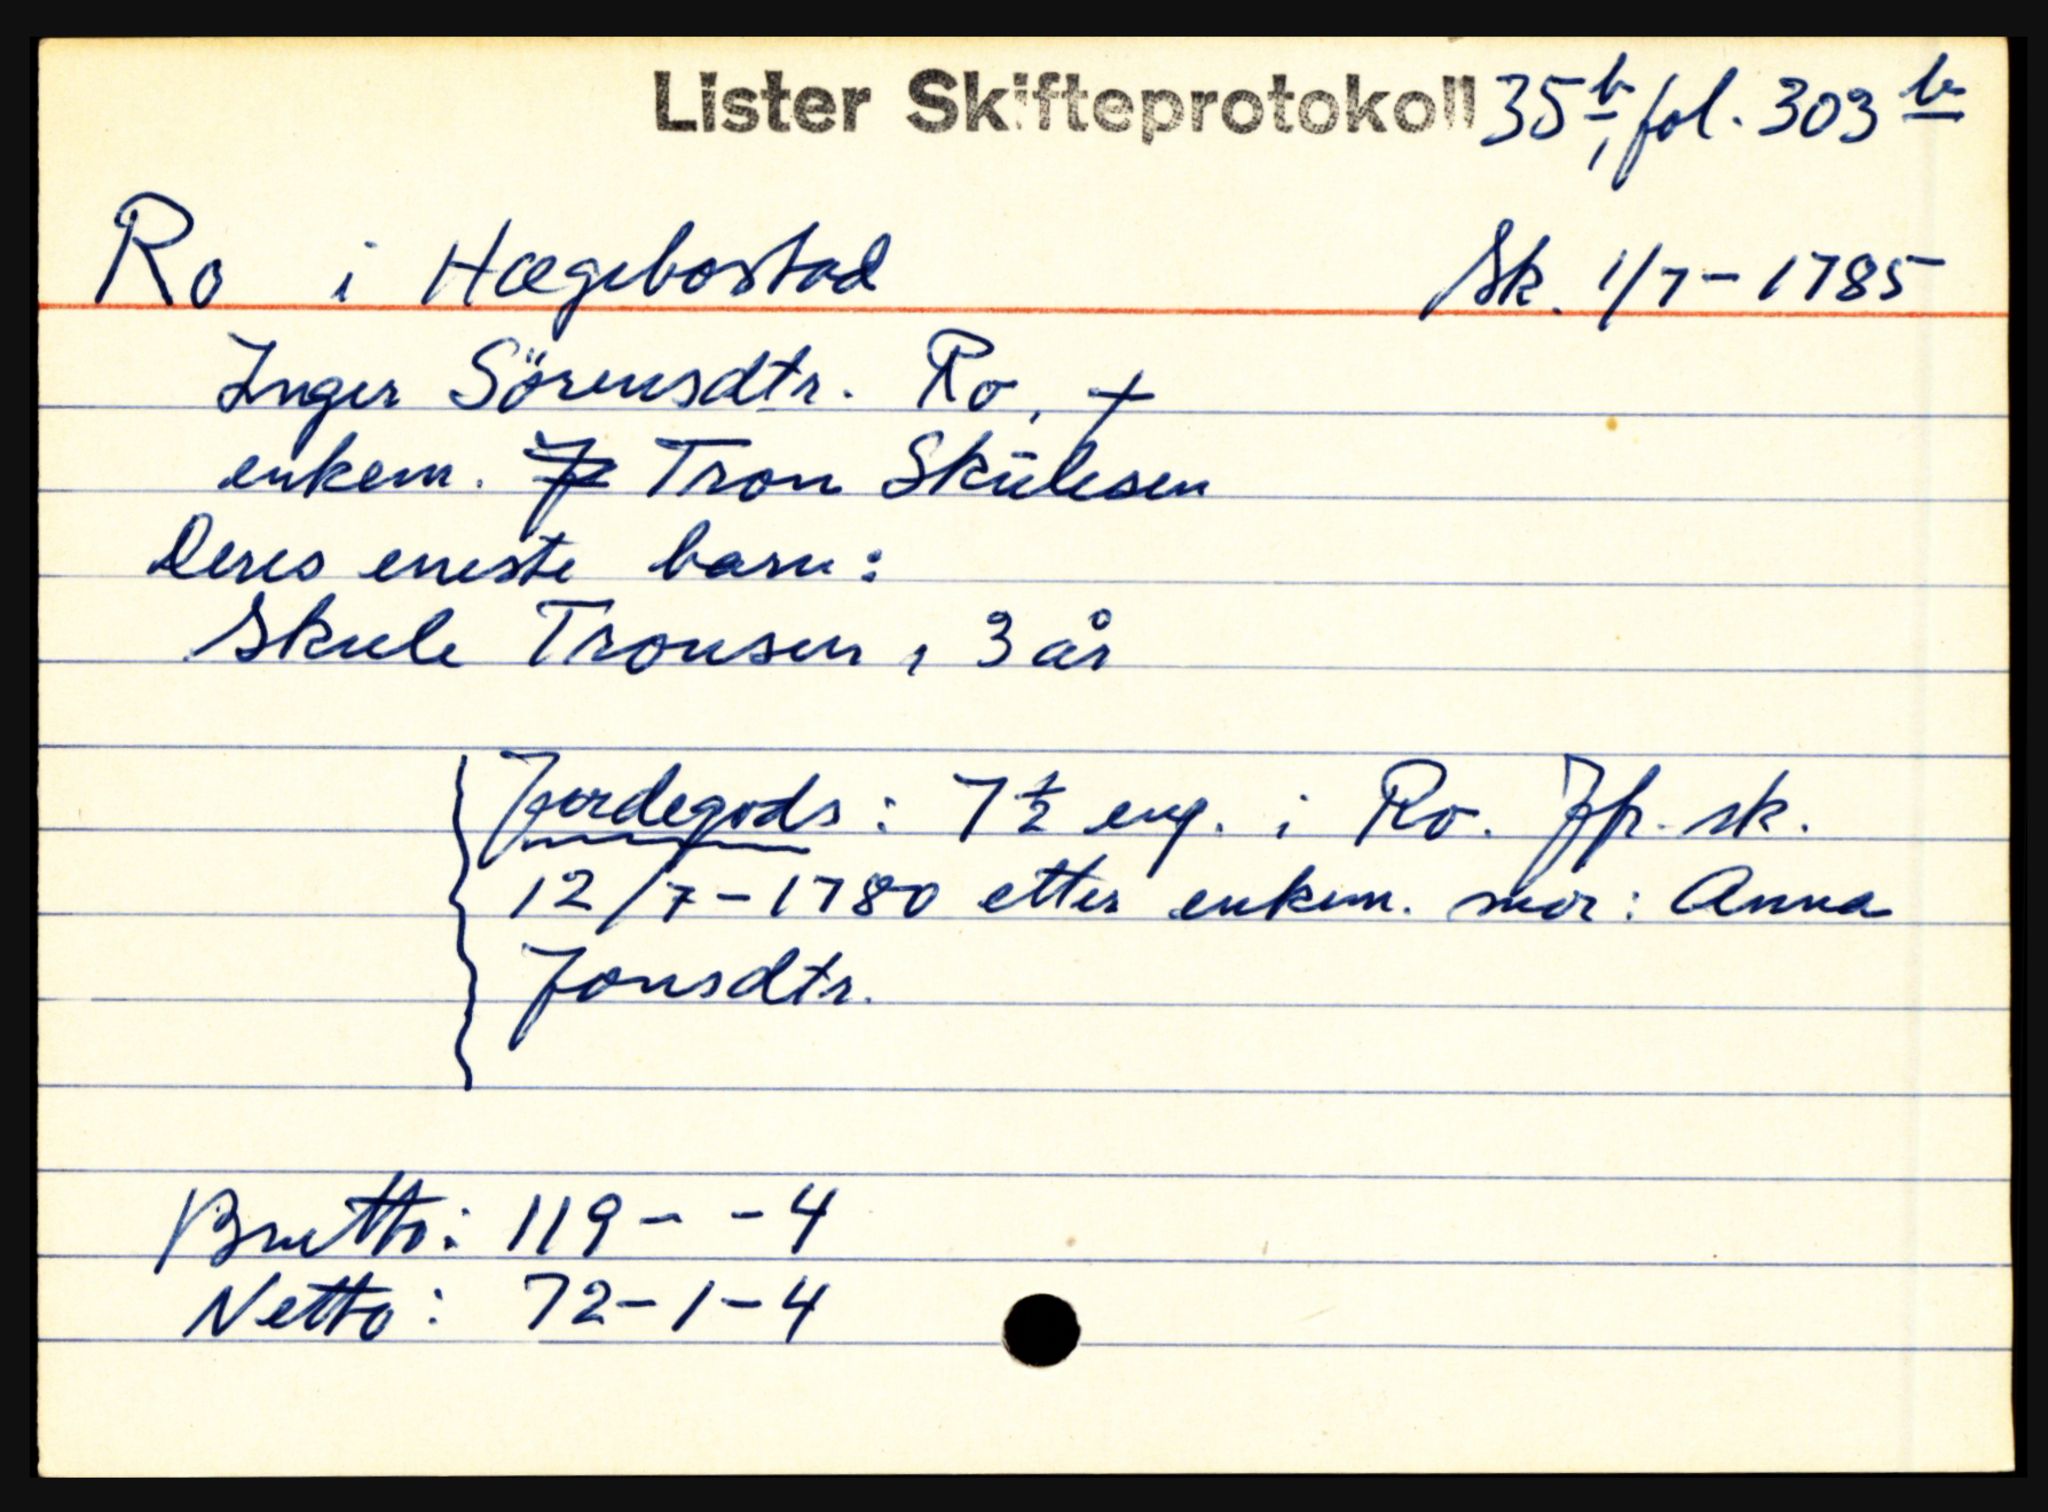 Lister Skifteprotokoll 35b, fol. 303 b
Ro i Hægebostad Sk. 1/7-1785
Inger Sörensdtr. Ro, +
enkem. Tron Skulesen
Deres eneste barn:
Skule Tronsen, 3 år
Jordegods: 7 1/2 eng. i Ro. Jfr. sk.
12/7-1780 etter enkem. mor: Anna
Jonsdtr.
Brutto: 119- -4
Netto: 72-1-4